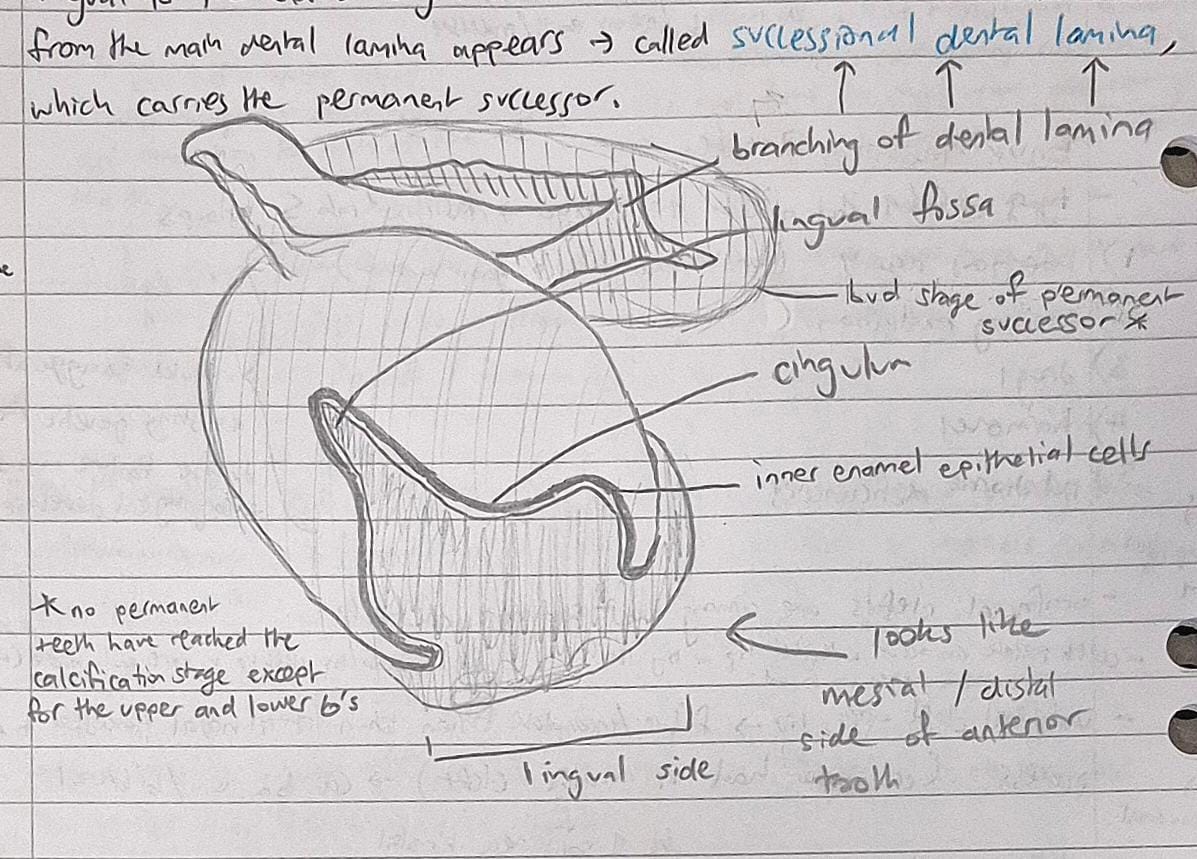 from the main dental lamina appears → called successional dental lamina,
which carries the permanent successor.
branching of dental lamina
lingual fossa
bud stage of permanent
successor *
cingulum
inner enamel epithelial cells
* no permanent
teeth have reached the
calcification stage except
for the upper and lower 6's
looks like
mesial / distal
side of anterior
tooth
lingual side